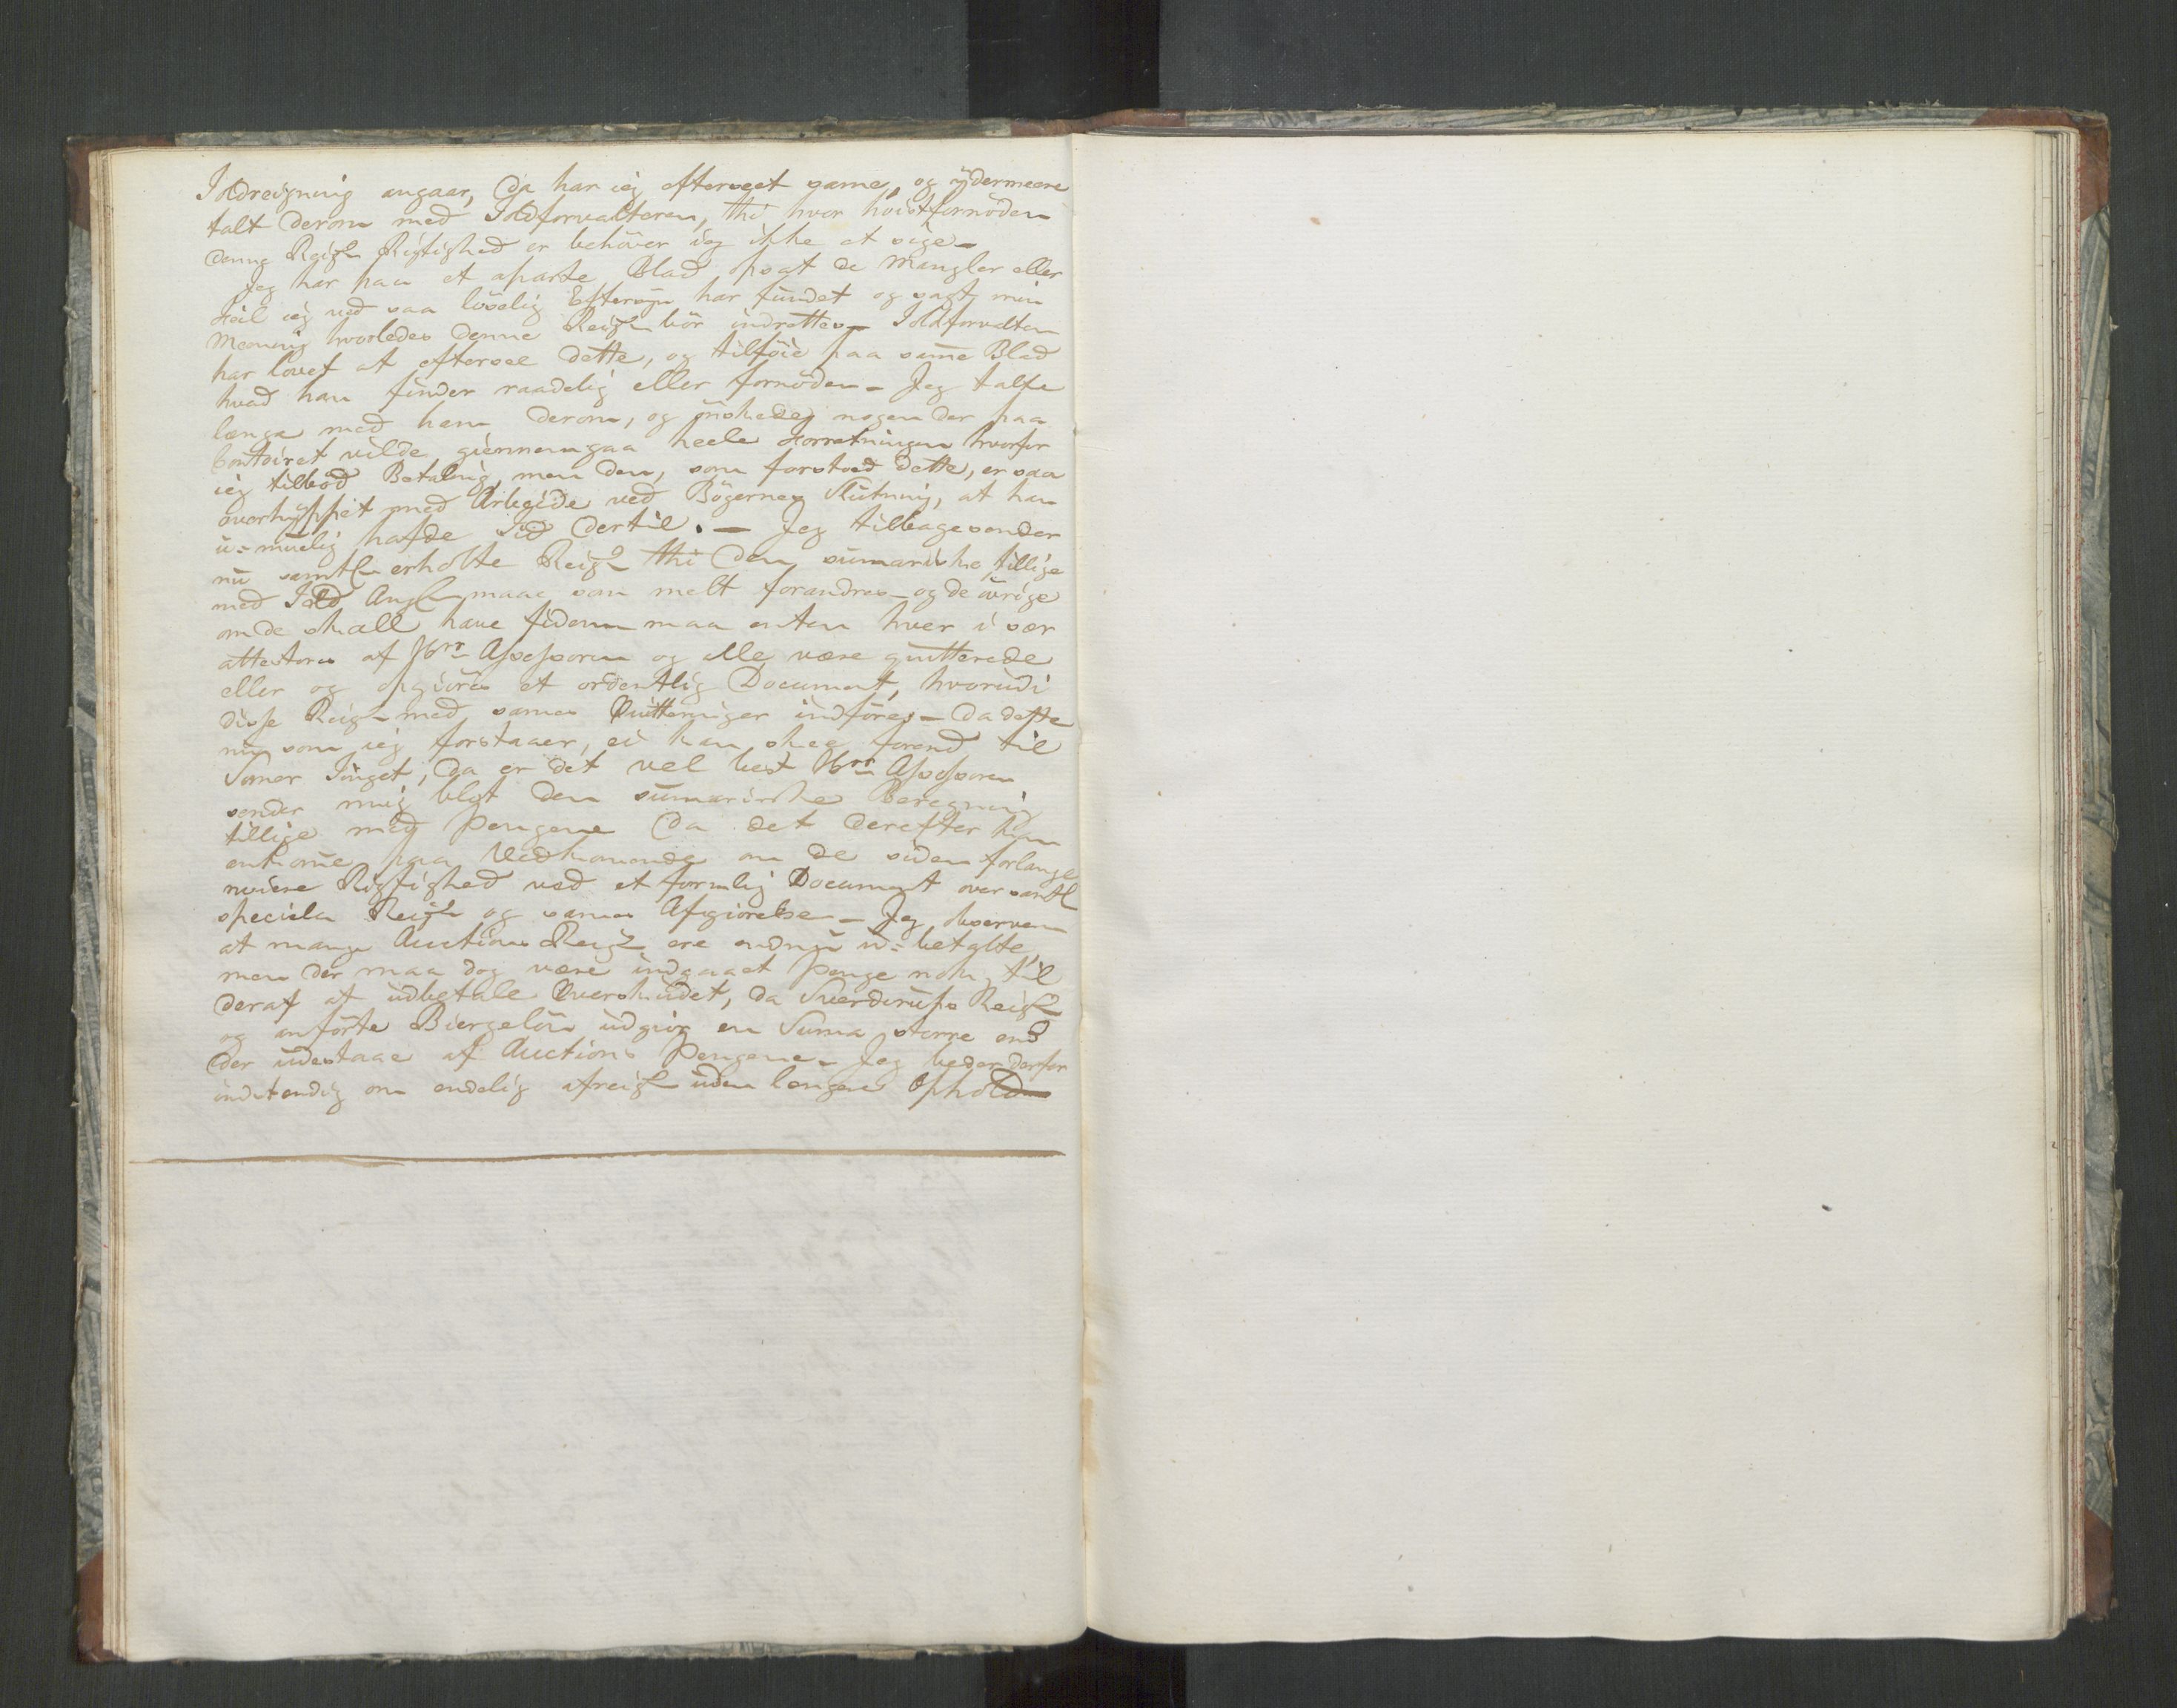 Toldreigning angaar, da har ieg efterseet samme, og ÿdermeere
talt derom med Toldforvalteren, thi hvor höistfornöden
denne Reign Rigtighed er behöver ieg ikke at sige –
Jeg har paa et aparte Blad sagt de Mangler eller
Feil ieg ved saa löselig Eftersyn har fundet og sagt min
Meening hvorledes denne Reign bör indrettes – Toldforvalten
har lovet at eftersee dette, og tilföie paa same Blad
hvad han finder raadelig eller fornöden – Jeg talte
længe med ham derom, og önskede nogen der paa
Contoiret vilde giennemgaa heele Forretningen hvorfor
ieg tilböd Betaling, men den, som forstoed dette, er saa
overhyppet med Arbeide ved Bögernes Slutning, at han
u=muelig hafde Tid dertil. – Jeg tilbagesender
nu samtl erholte Reign thi den sumariske tillige
med Told Angl maae som melt forandres – og de övrige
om de skall have fidem maa enten hver i sær
attesteres af Hrr Assessoren og alle være qvitterede
eller og opgiöres et ordentlig Document, hvorudi
disse Reign med sames Qvitteringer indföres – da dette
nu som ieg forstaaer, ei kan skee forend til
Somer Tinget, da er det vel best Hrr Assessoren
sender mig blot den sumariske Beregning
tillige med Pengene da det derefter kan
ankome paa Vedkomende om de siden forlange
nöiere Rigtighed ved et formlig Document over samtl
speciele Reign og sames Afgiörelse – Jeg observerer
at mange Auctions Reign ere endnu u=betalte
men der maa dog være indgaaet Penge nok til
deraf at udbetale Overskudet, da Sverdrups Reign
og anförte Biergelön udgiör en Suma större end
der udestaae af Auctions Pengene – Jeg beder derfor
indstendig om endelig afreign uden lengere Ophold –